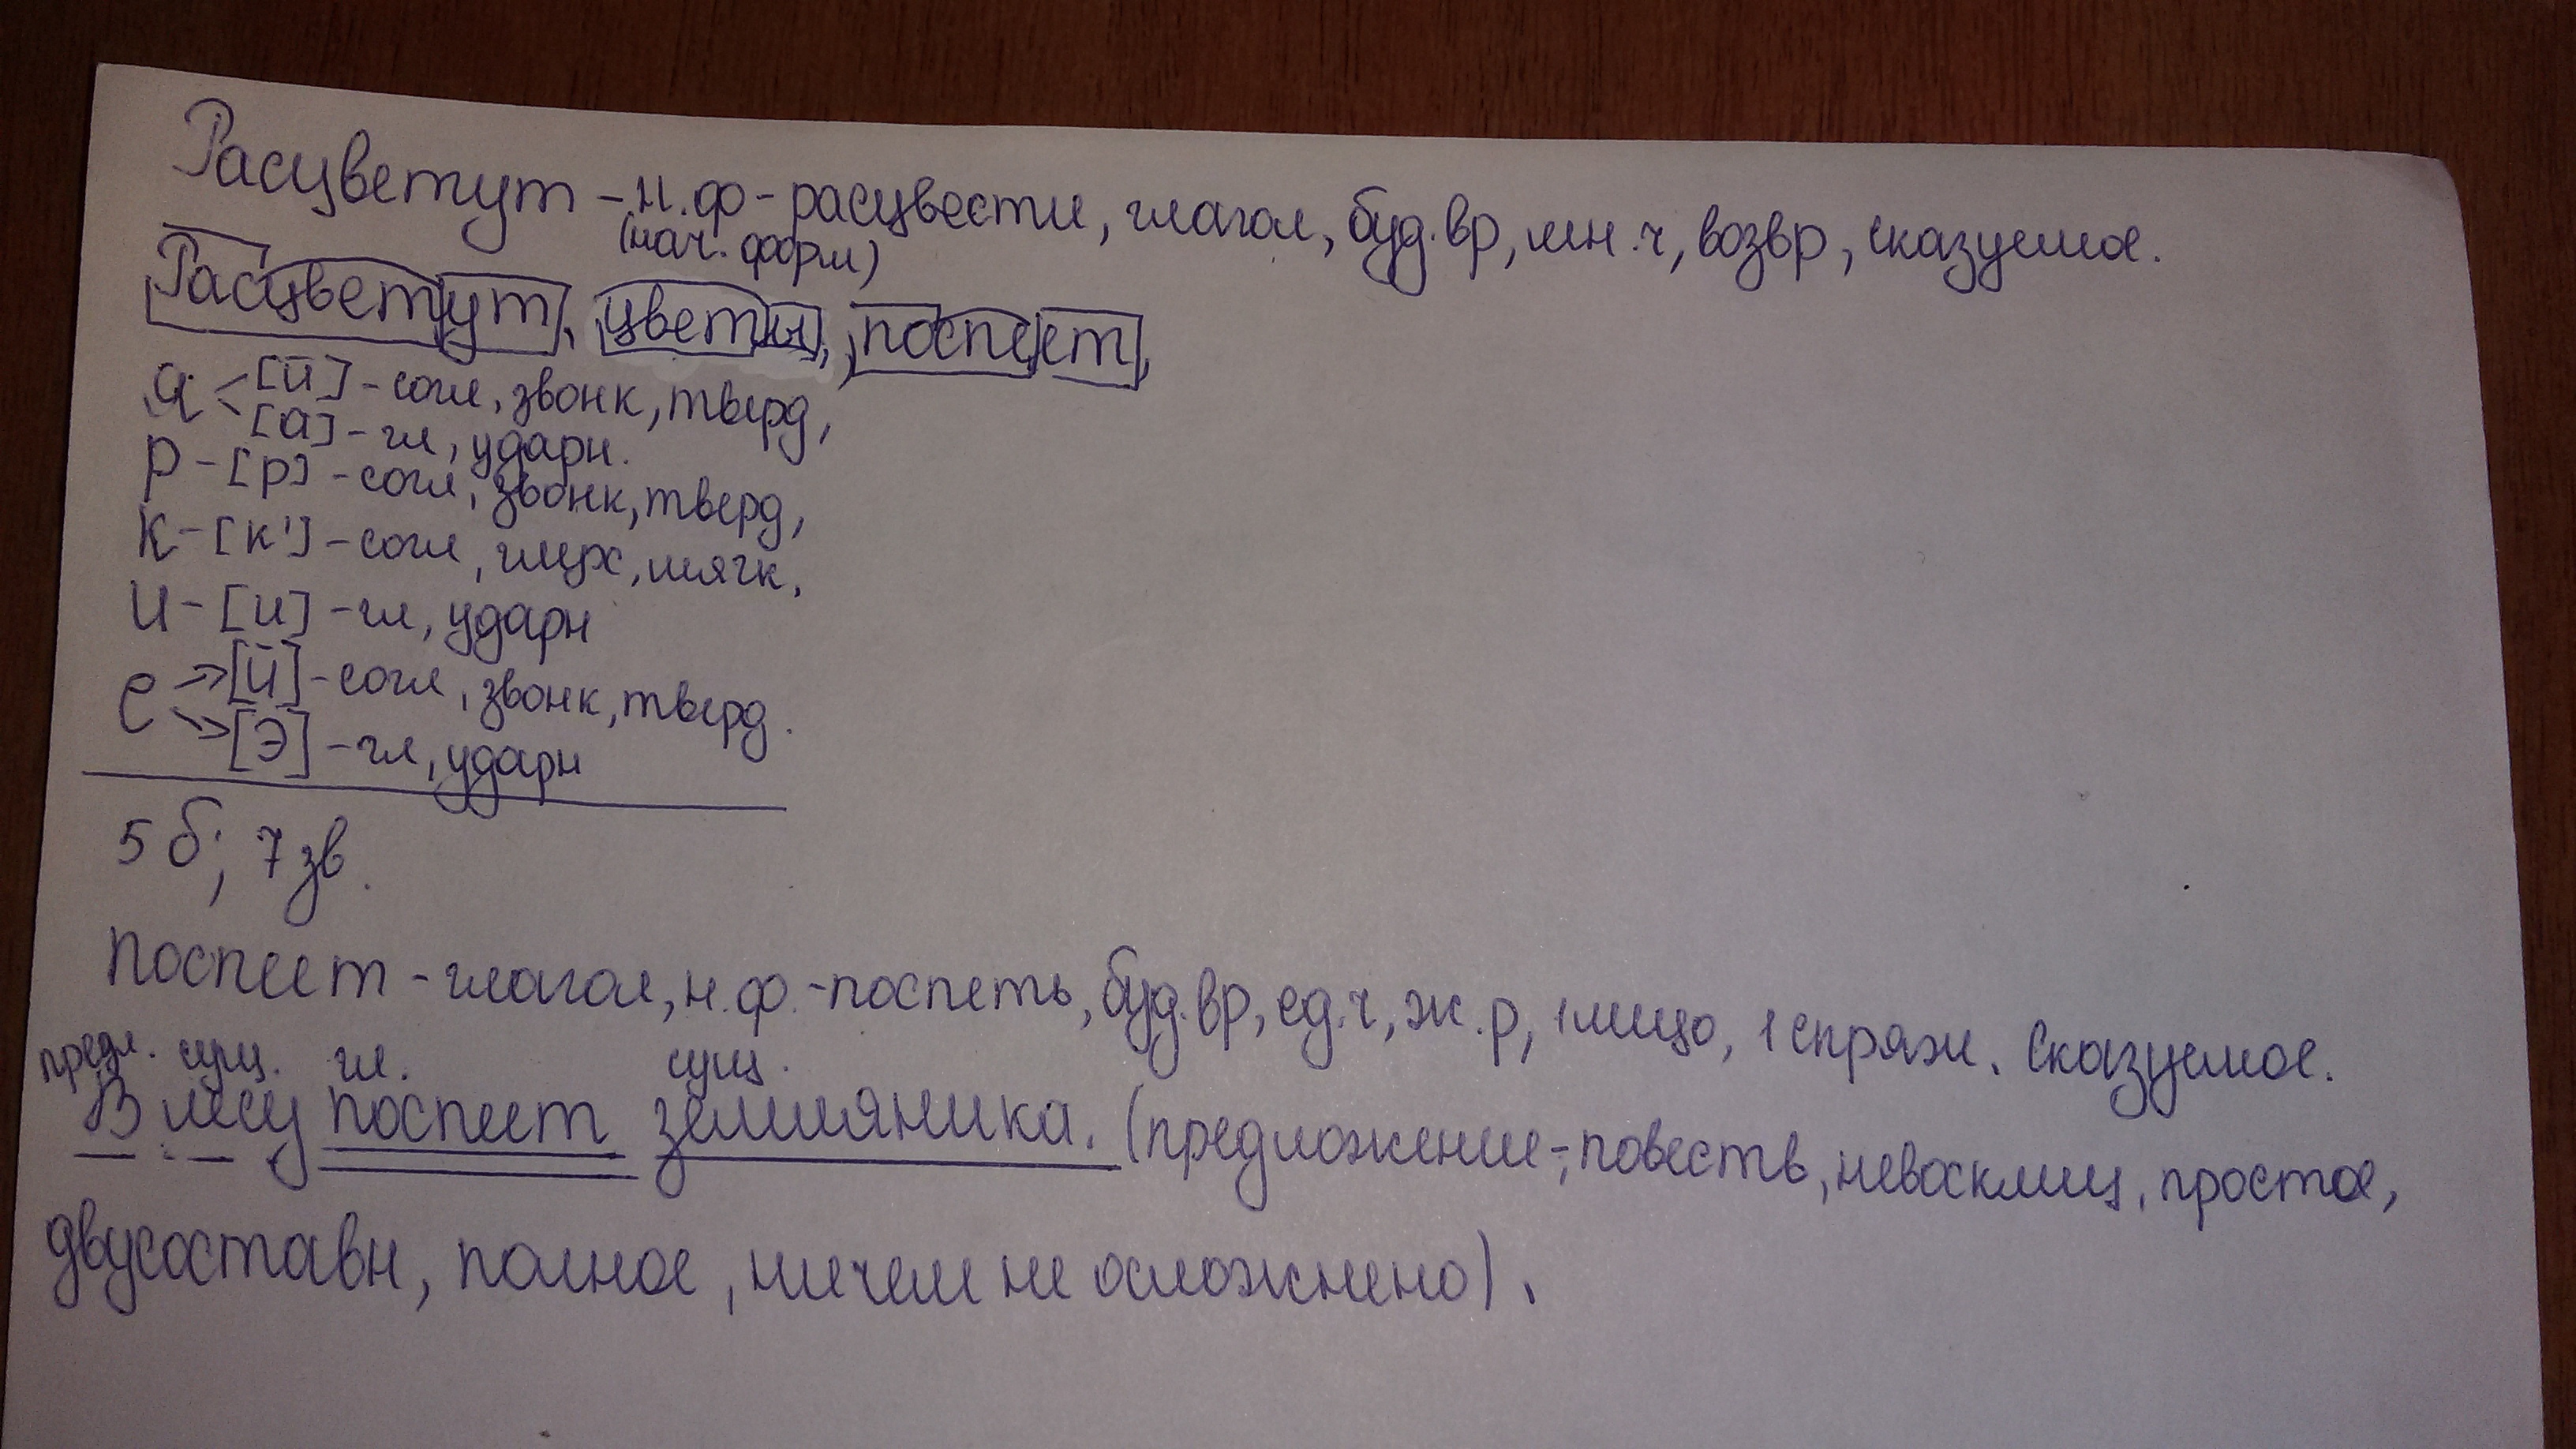 Расцветут - н.ф - расцвести, глагол, буд.вр, мн.ч, возвр, сказуемое.
(нач. форм)
Расцветут, цветы, поспеет,
я < [й] - согл, звонк, тверд,
[а] - гл, ударн.
р - [р] - согл, звонк, тверд,
к - [к'] - согл, глух, мягк,
и - [и] - гл, ударн
е → [й] - согл, звонк, тверд.
→ [э] - гл, ударн
5 б; 7 зв.
поспеет - глагол, н.ф. - поспеть, буд.вр, ед.ч, ж.р, 1 лицо, 1 спряж. Сказуемое.
предл. сущ. гл. сущ.
В лесу поспеет земляника. (предложение -, повеств, невосклиц, простое,
двусоставн, полное, ничем не осложнено).